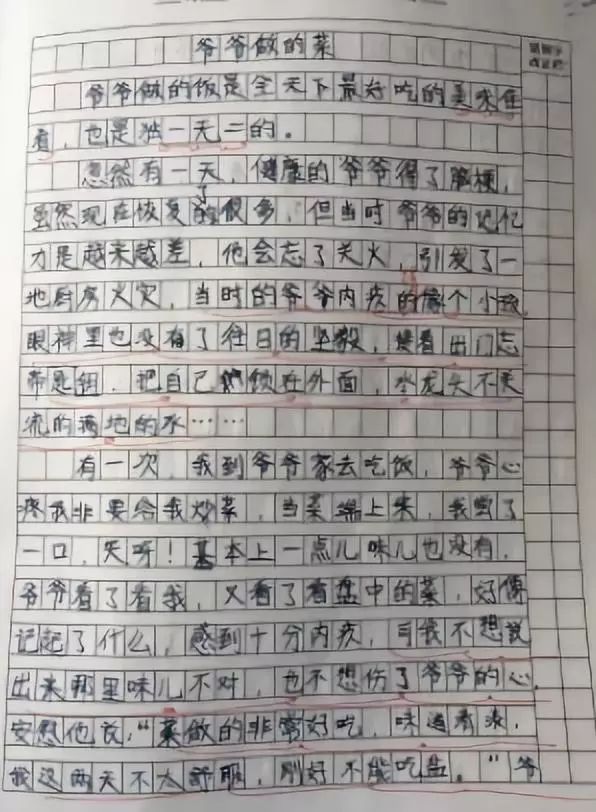 爷爷做的菜
爷爷做的饭是全天下最好吃的美味佳
肴，也是独一无二的。
忽然有一天，健康的爷爷得了脑梗，
虽然现在恢复了的很多，但当时爷爷的记忆
力是越来越差，他会忘了关火，引发了一
地厨房火灾，当时的爷爷内疚的像个小孩，
眼神里也没有了往日的坚毅，接着出门忘
带匙钥，把自己锁在外面，水龙头不关
流的满地的水……
有一次，我到爷爷家去吃饭，爷爷心
疼我非要给我炒菜，当菜端上来，我尝了
一口，天呀！基本上一点儿味儿也没有，
爷爷看了看我，又看了看盘中的菜，好像
记起了什么，感到十分内疚，可我不想说
出来那里味儿不对，也不想伤了爷爷的心，
安慰他说：“菜做的非常好吃，味道有淡，
我这两天不太舒服，刚好不能吃盐。”爷